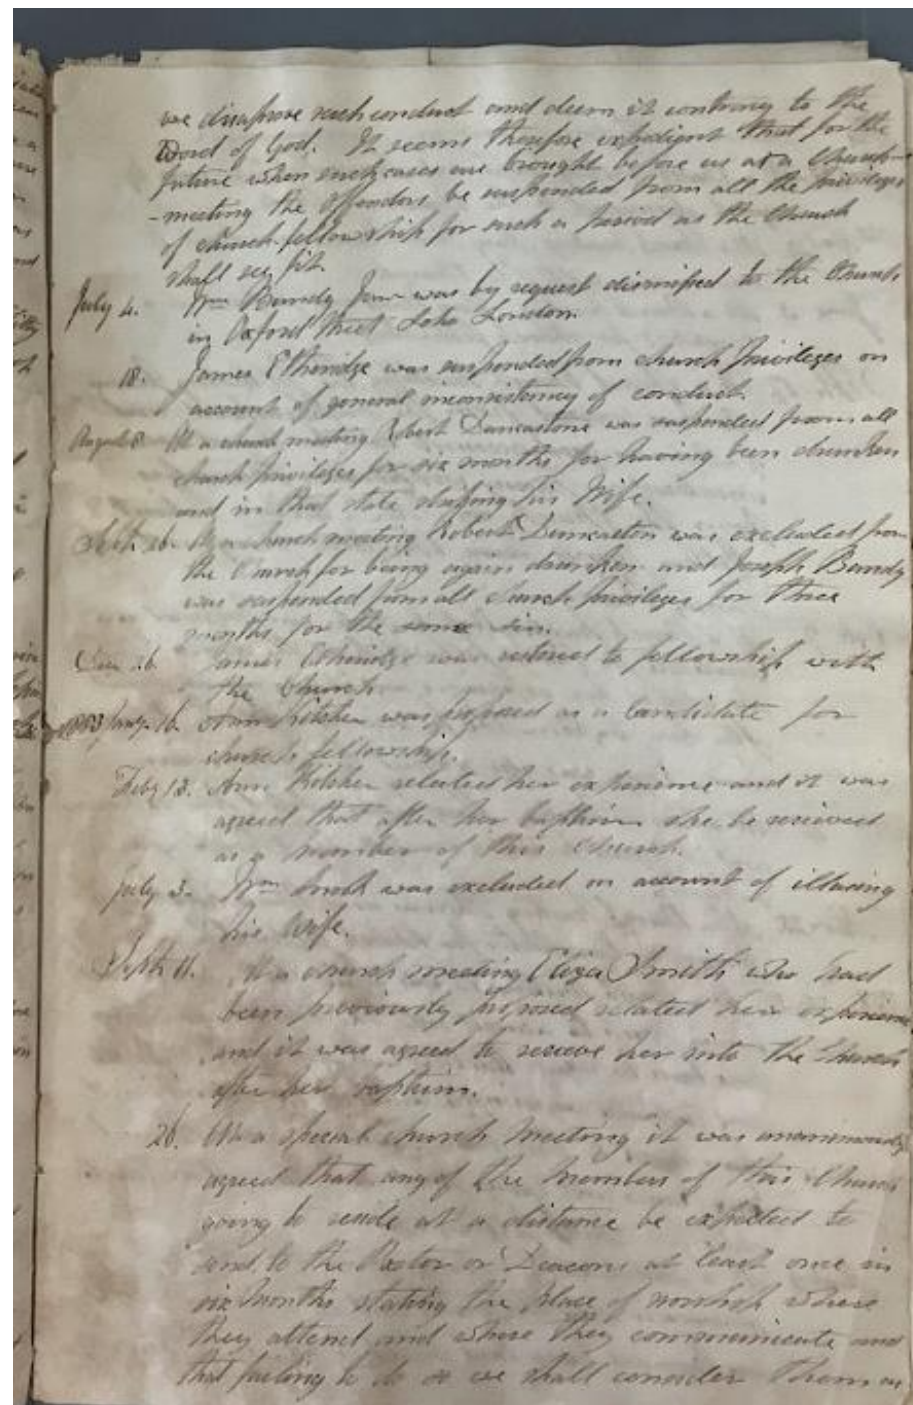 we disaprove such conduct and deem it contrary to the
Word of God. It seems therefore expedient that for the
future when such cases are brought before us at a Church
-meeting the offenders be suspended from all the privileges
of church-fellowship for such a period as the Church
shall see fit.
July 4. Wm Bundy Junr was by request dismissed to the Church
in Oxford Street Soho London.
18. James Etheridge was suspended from church privileges on
account of general inconsistency of conduct.
August 8 At a church meeting Robert was suspended from all
church privileges for six months for having been drunken
and in that state striking his Wife.
Sept. 26. At a church meeting Robert was excluded from
the Church for being again drunken and Joseph Bundy
was suspended from all church privileges for three
months for the same sin.
26 James Etheridge was restored to fellowship with
the Church
Jany. 16. Ann Kitchen was proposed as a Candidate for
church fellowship.
Feby 13. Ann Kitchen related her experience and it was
agreed that after her baptism she be recieved
as a member of this Church.
July 3. Wm Smith was excluded on account of illusing
his Wife.
Septr 11. At a church meeting Eliza Smith who had
been previously proposed related her experience
and it was agreed to receive her into the Church
after her baptism.
26. At a special church meeting it was unanimously
agreed that any of the members of this Church
going to reside at a distance be expected to
send to the Pastor or Deacons at least once in
six months stating the place of worship where
they attend and where they communicate and
that failing to do so we shall consider them as